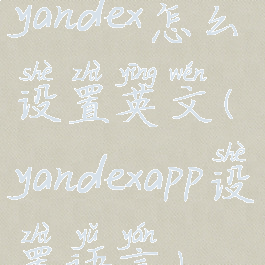 yandex怎么
shè zhì yīng wén
设置英文(
yandexapp设
shè
zhì yǔ yán
置语言)